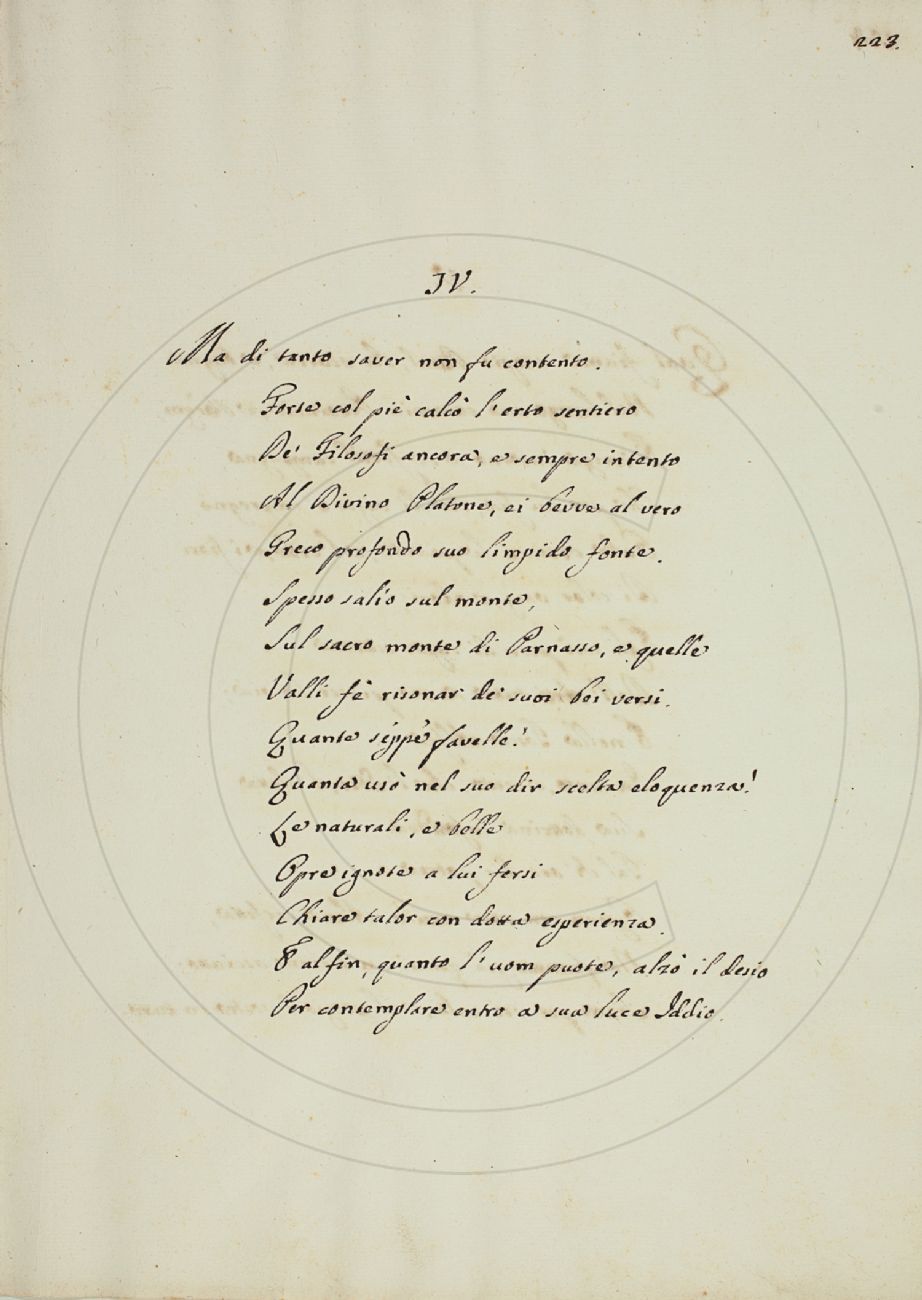 223.
IV.
Ma di tanto saver non fu contento.
Forte col piè calcò l'erto sentiero
De' Filosofi ancora, e sempre intento
Al Divino Platone, ei bevve al vero
Greco profondo suo limpido fonte.
Spesso salío sul monte,
Sul sacro monte di Parnasso, e quelle
Valli fè risonar de' suoi bei versi.
Quante seppe favelle!
Quanta usò nel suo dir scelta eloquenza!
Le naturali, e belle
Opre ignote a lui fersi
Chiare talor con dotta esperienza.
E alfin, quanto l'uom puote, alzò il desio
Per contemplare entro a sua luce Iddio.